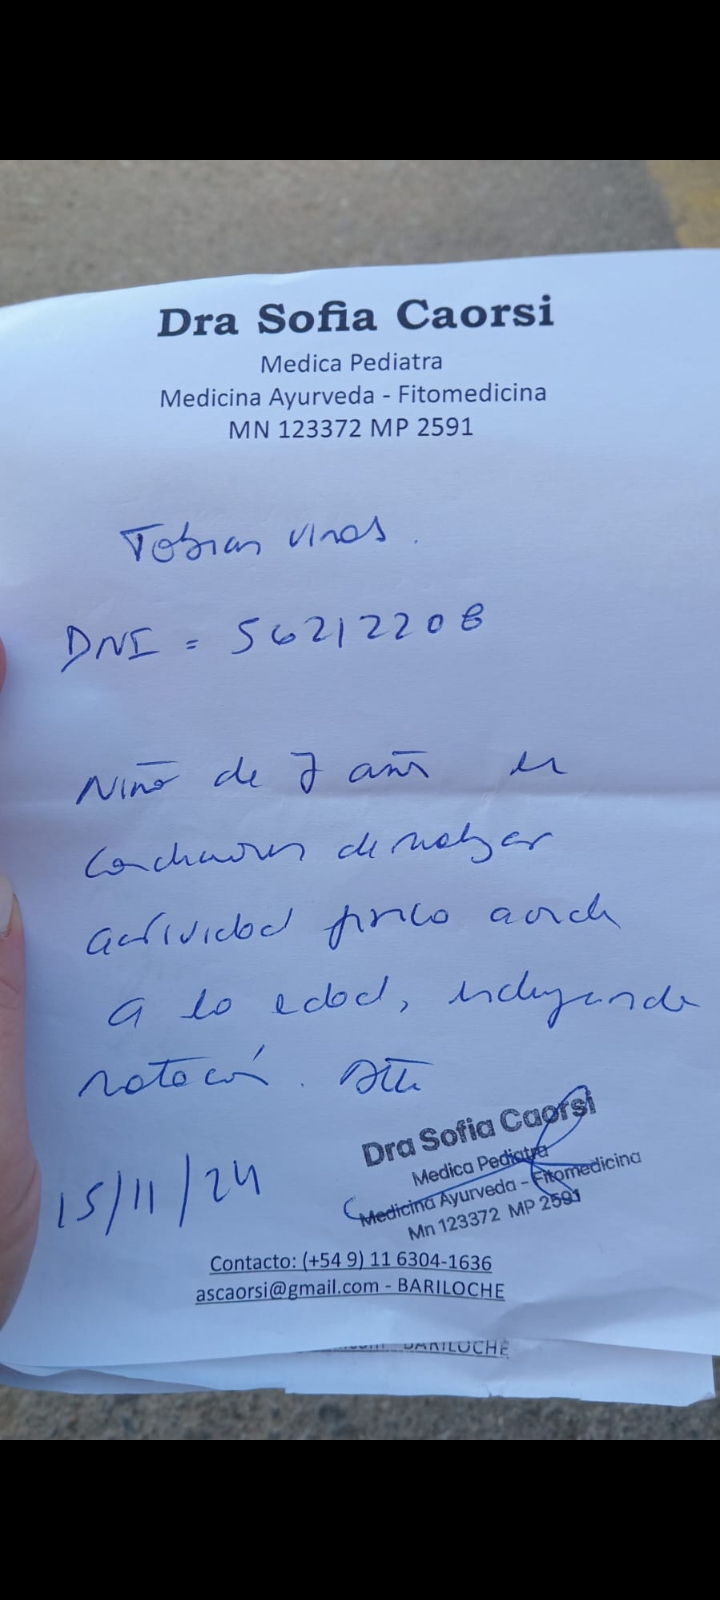 Dra Sofia Caorsi
Medica Pediatra
Medicina Ayurveda - Fitomedicina
MN 123372 MP 2591
Tobias
DNI = 56212208
Niño de 7 años en
condiciones de realizar
actividad fisica acorde
a la edad, incluyendo
natación. Atte
15/11/24
Dra Sofia Caorsi
Medica Pediatra
Medicina Ayurveda - Fitomedicina
Mn 123372 MP 2591
Contacto: (+54 9) 11 6304-1636
ascaorsi@gmail.com - BARILOCHE
BARILOCHE